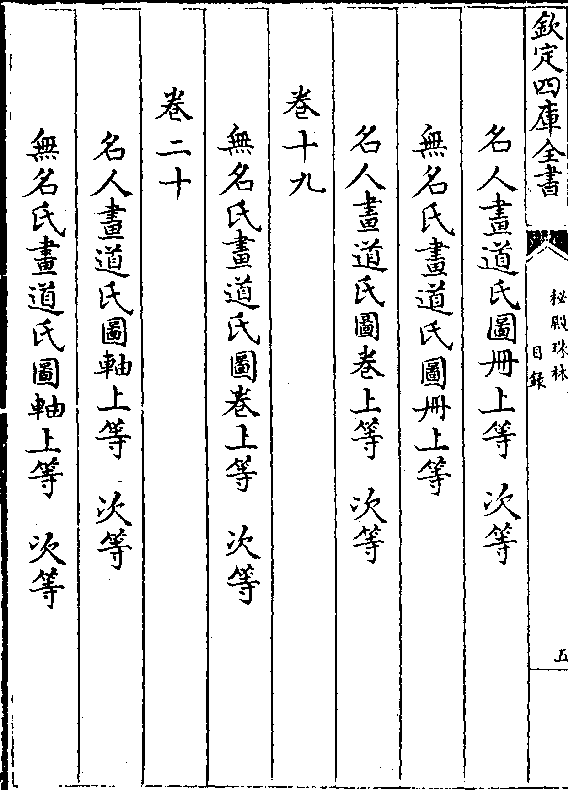 欽定四庫全書
秘殿珠林
目録
五
名人畫道氏圖冊上等 次等
無名氏畫道氏圖冊上等
名人畫道氏圖卷上等 次等
卷十九
無名氏畫道氏圖卷上等 次等
卷二十
名人畫道氏圖軸上等 次等
無名氏畫道氏圖軸上等 次等